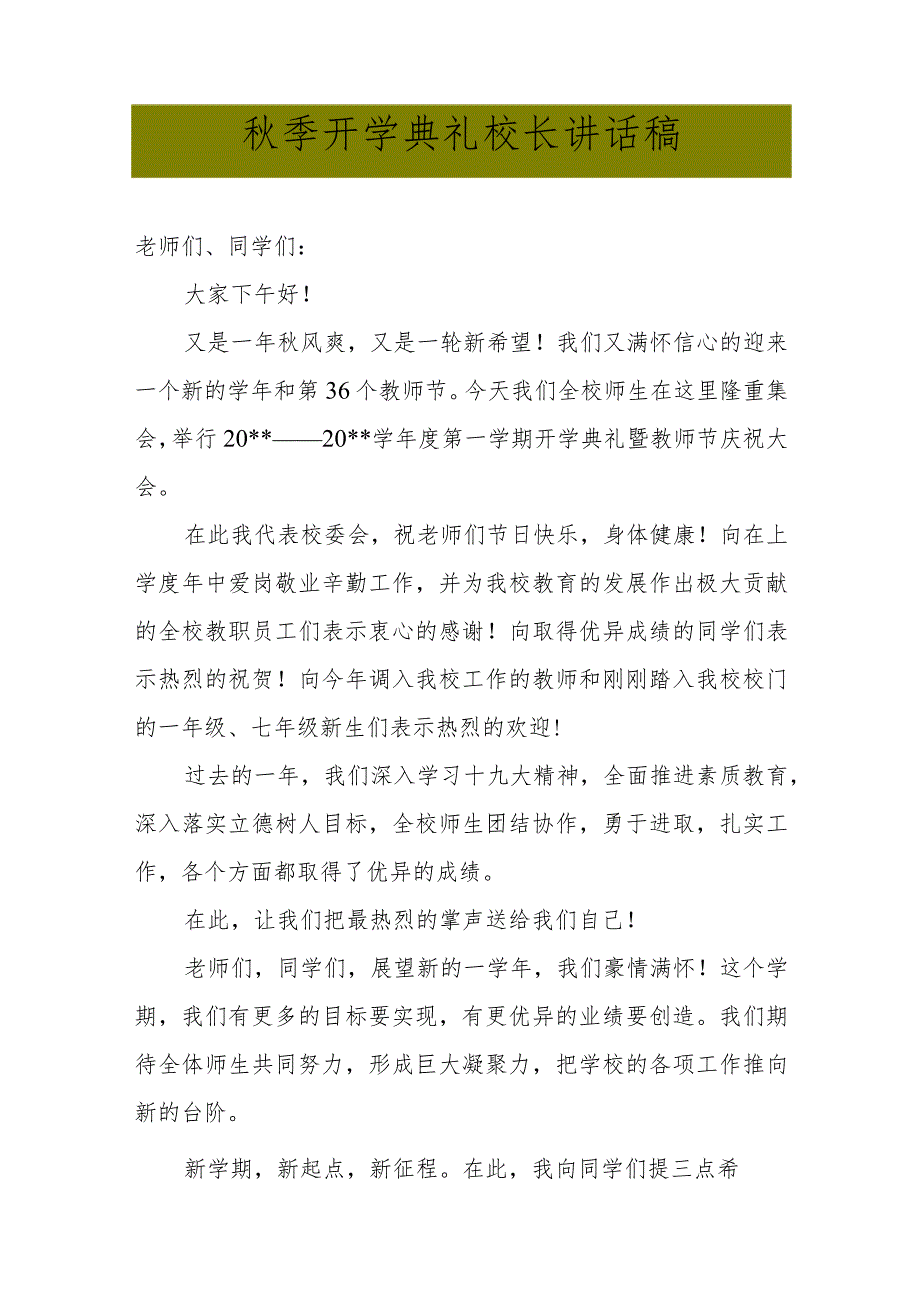 秋季开学典礼校长讲话稿
老师们、同学们：
大家下午好！
又是一年秋风爽，又是一轮新希望！我们又满怀信心的迎来
一个新的学年和第 36 个教师节。今天我们全校师生在这里隆重集
会，举行 20**——20**学年度第一学期开学典礼暨教师节庆祝大
会。
在此我代表校委会，祝老师们节日快乐，身体健康！向在上
学度年中爱岗敬业辛勤工作，并为我校教育的发展作出极大贡献
的全校教职员工们表示衷心的感谢！向取得优异成绩的同学们表
示热烈的祝贺！向今年调入我校工作的教师和刚刚踏入我校校门
的一年级、七年级新生们表示热烈的欢迎！
过去的一年，我们深入学习十九大精神，全面推进素质教育，
深入落实立德树人目标，全校师生团结协作，勇于进取，扎实工
作，各个方面都取得了优异的成绩。
在此，让我们把最热烈的掌声送给我们自己！
老师们，同学们，展望新的一学年，我们豪情满怀！这个学
期，我们有更多的目标要实现，有更优异的业绩要创造。我们期
待全体师生共同努力，形成巨大凝聚力，把学校的各项工作推向
新的台阶。
新学期，新起点，新征程。在此，我向同学们提三点希